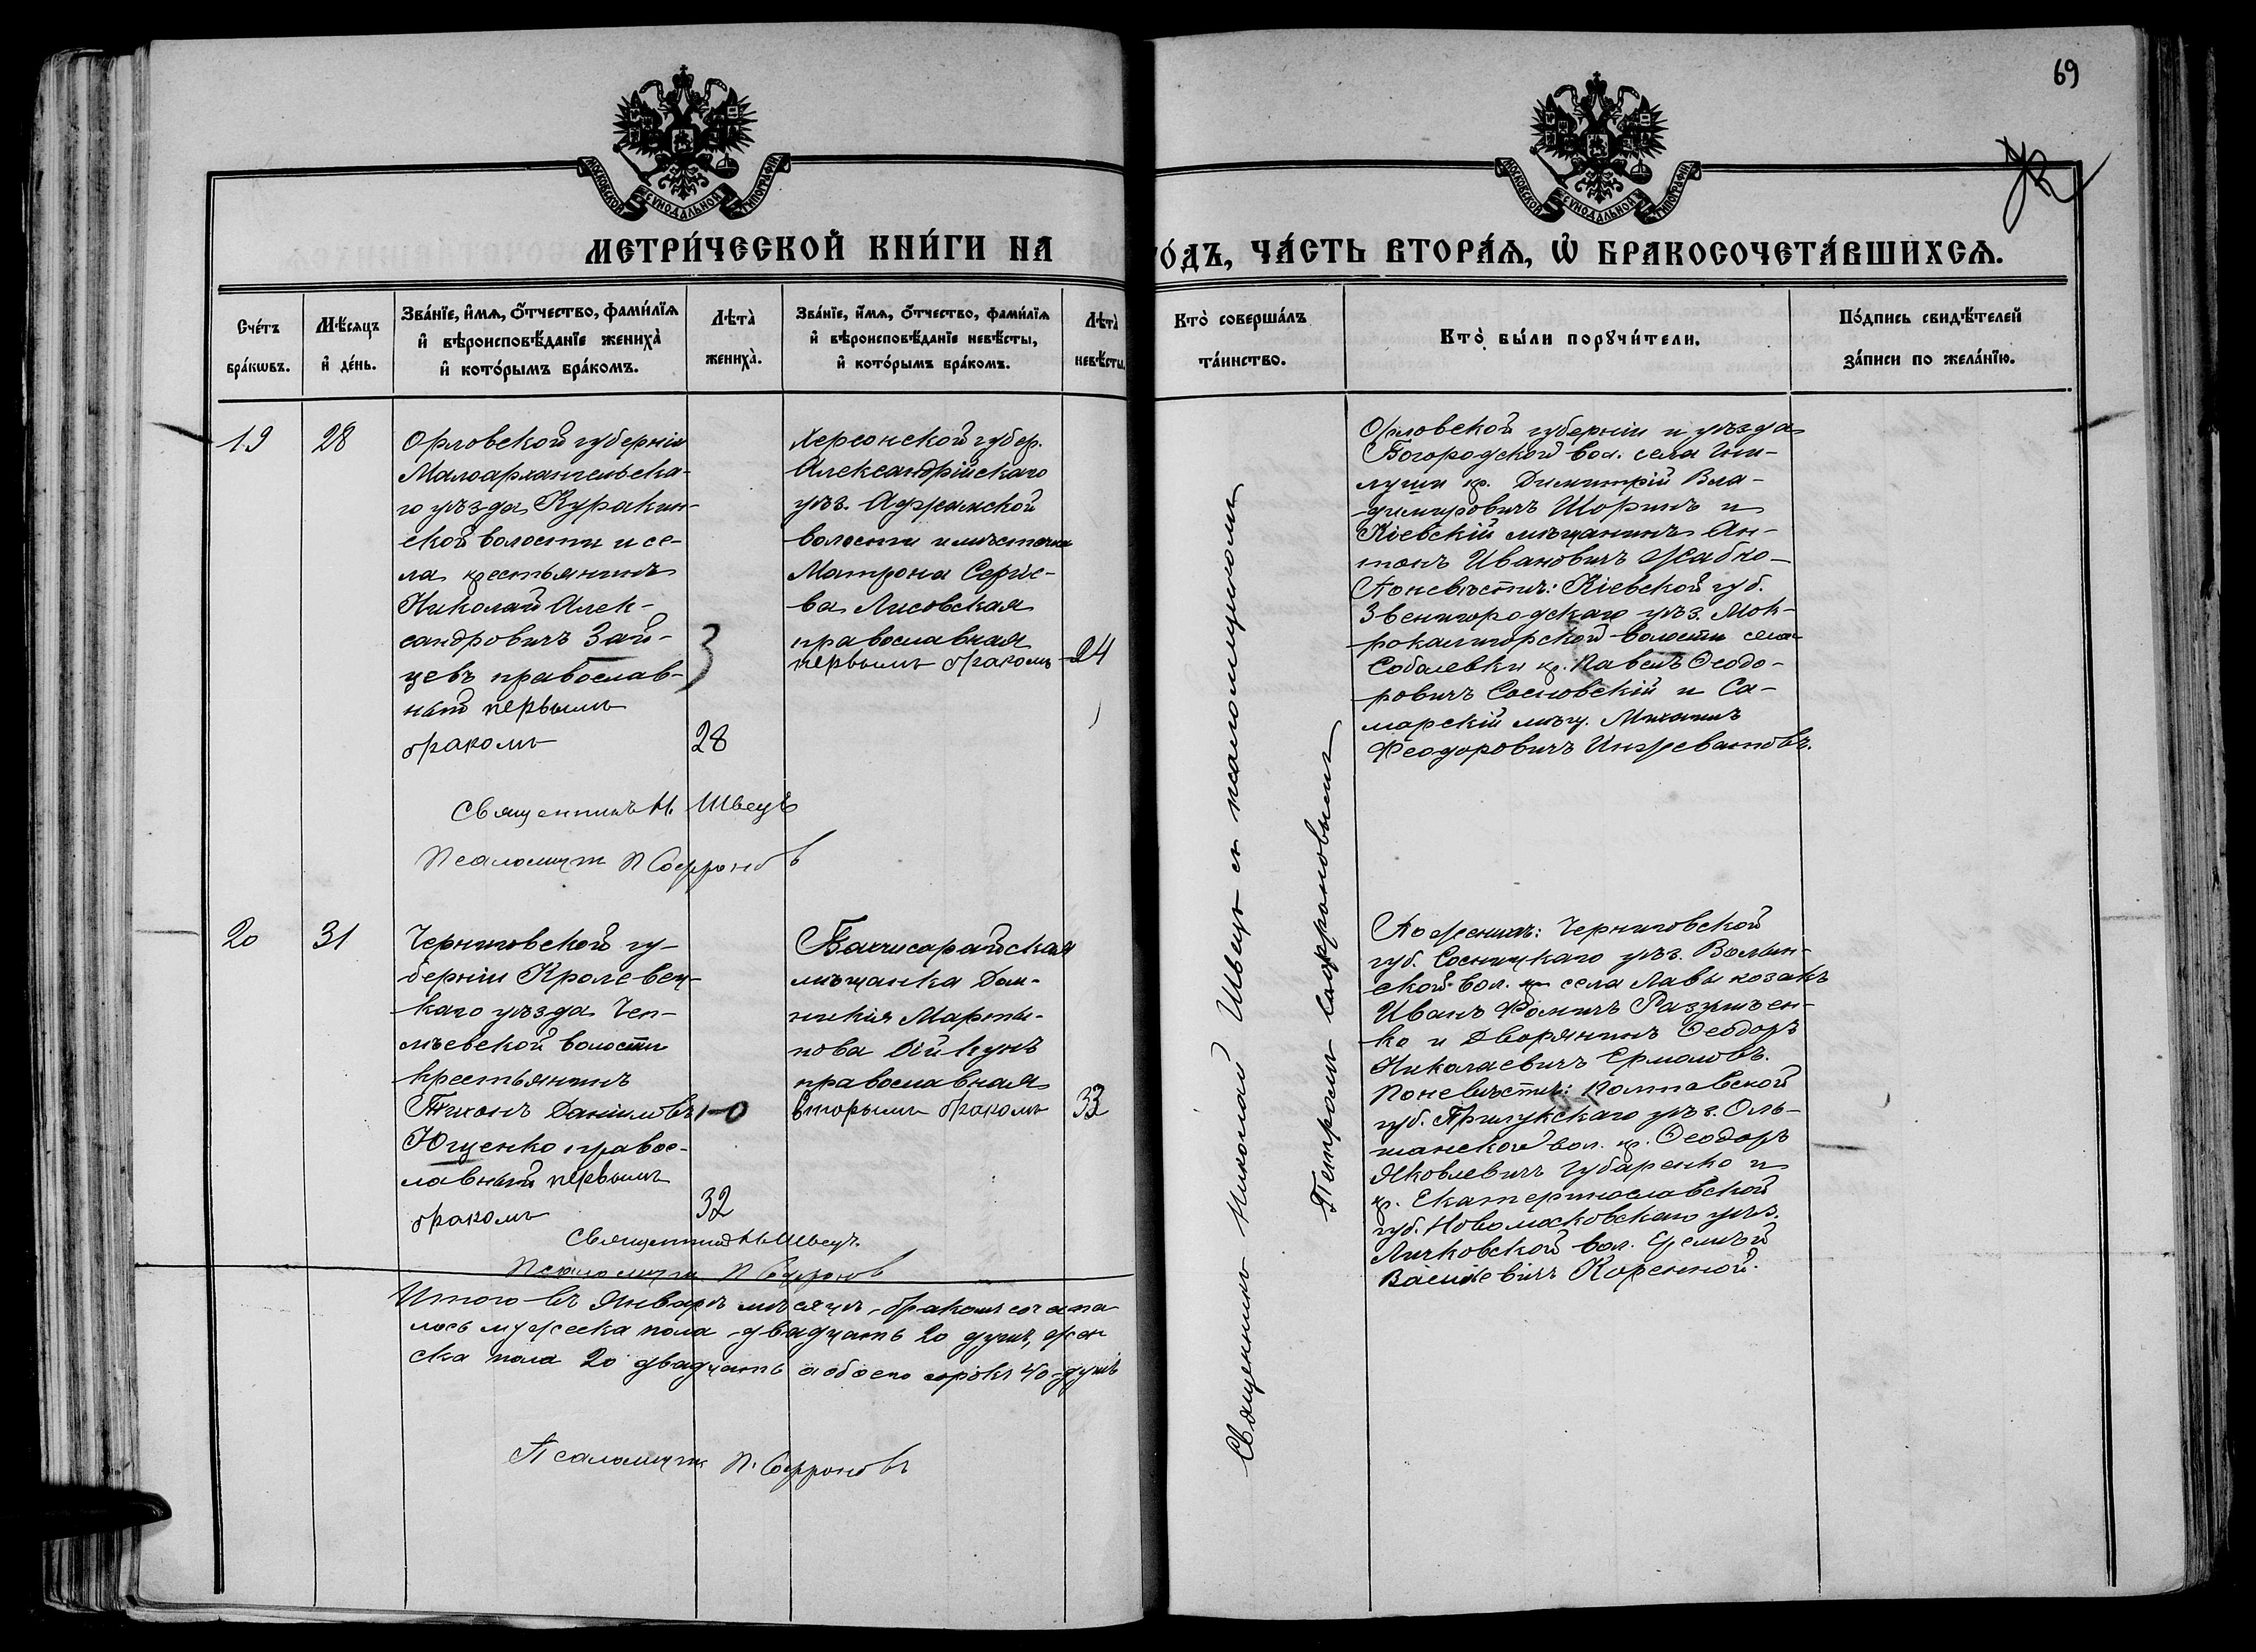 69
МОСКОВСКОЙ СУНОДАЛЬНОЙ ТИПОГРАФІИ
МОСКОВСКОЙ СУНОДАЛЬНОЙ ТИПОГРАФІИ
МЕТРИ́ЧЕСКОЙ КНИ́ГИ НА
ГО́ДЪ, ЧА́СТЬ ВТОРА́Я, Ѡ҆ БРАКОСОЧЕТА́ВШИХСѦ.
Сче́тъ бра́кѡвъ.
Мѣ́сяцъ и҆ де́нь.
Зва́нїе, и҆́мѧ, ѻ҆́тчество, фами́лїѧ
и҆ вѣроисповѣ́данїе жениха̀
и҆ кото́рымъ бра́комъ.
Лѣта̀ жениха̀.
Зва́нїе, и҆́мѧ, ѻ҆́тчество, фами́лїѧ
и҆ вѣроисповѣ́данїе невѣ́сты,
и҆ кото́рымъ бра́комъ.
Лѣта̀ невѣ́сты.
Кто̀ соверша́лъ
та́инство.
Кто̀ бы́ли порꙋчи́тели.
По́дпись свидѣ́телей
за́писи по жела́нїю.
19
28
Орловской губерніи
Малоархангельска-
го уѣзда Куракин-
ской волости и се-
ла крестьянинъ
Николай Алек-
сандровичъ Зай-
цевъ православ-
ный первымъ
бракомъ
28
3
Херсонской губер.
Александрійскаго
уѣз. Аджамской
волости и мѣстечка
Матрона Сергіе-
ва Лисовская
православная
первымъ бракомъ
24
Орловской губерніи и уѣзда
Богородской вол. села
кр. Димитрій Вла-
димировичъ Шоринъ и
Кіевскій мѣщанинъ Ан-
тонъ Ивановичъ Жабко-
По невѣстѣ: Кіевской губ.
Звенигородскаго уѣз. Мок-
рокалигорской волости села
Соболевки кр. Павелъ Ѳеодо-
ровичъ Сосновскій и Са-
марскій мѣщ. Михаилъ
Феодоровичъ Инжеватовъ.
Священникъ Н. Швецъ
Псаломщикъ П Софроновъ
20
31
Черниговской гу-
берніи Кролевец-
каго уѣзда Чеп-
лѣевской волости
крестьянинъ
Тихонъ Даніиловъ
Ющенко правос-
лавный первымъ
бракомъ
32
Бахчисарайская
мѣщанка Дом-
никія Марты-
нова
православная
вторымъ бракомъ
33
По женихѣ: Черниговской
губ. Сосницкаго уѣз. Волын-
ской вол. села Лавы козакъ
Иванъ Фомичъ Разумѣен-
ко и Дворянинъ Ѳеодоръ
Николаевичъ Ермоловъ.
По невѣстѣ: Полтавской
губ. Прилукскаго уѣз. Оль-
шанской вол. кр. Ѳеодоръ
Яковлевичъ Губаренко и
кр. Екатеринославской
губ. Новомосковскаго уѣз.
Личковской вол. Еремѣй
Васильевичъ Коренной.
Священникъ Николай Швецъ съ псаломщикомъ
Петромъ Софроновымъ
Священникъ Н. Швецъ.
Псаломщикъ П Софроновъ
Итого въ Январѣ мѣсяцѣ бракомъ сочета
лось мужеска пола двадцать 20 душъ, жен
ска пола 20 двадцать а обоего сорокъ 40 душъ
Псаломщикъ П. Софроновъ